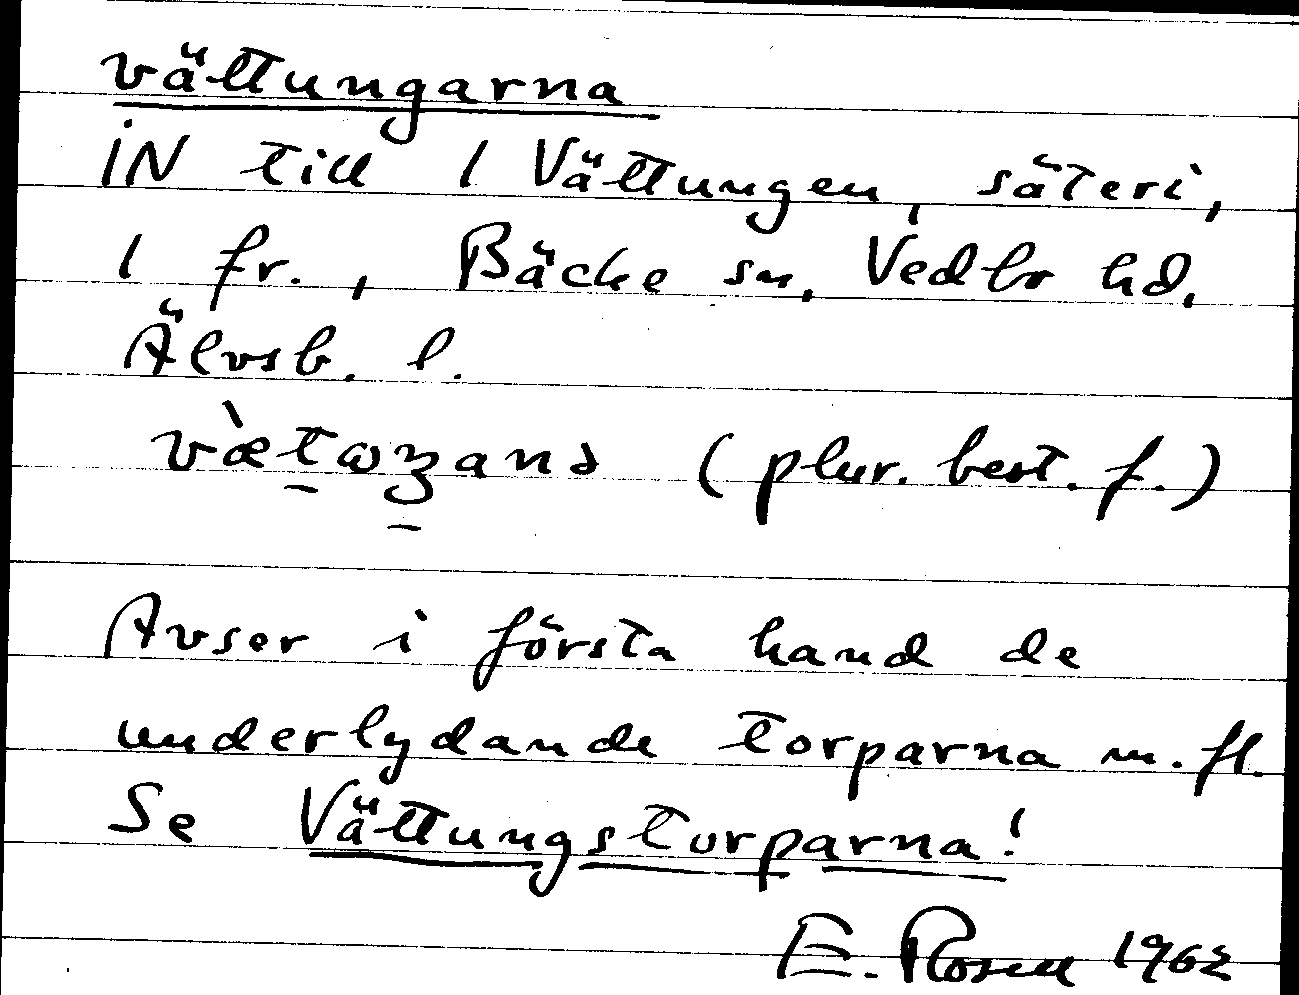 vättungarna
iN till 1 Vättungen, säteri,
1 fr., Bäcke sn, Vedbo hd,
Älvsb. l.
(plur. best. f.)
Avser i första hand de
underlydande torparna m.fl.
Se Vättungstorparna!
E. Rosell 1962